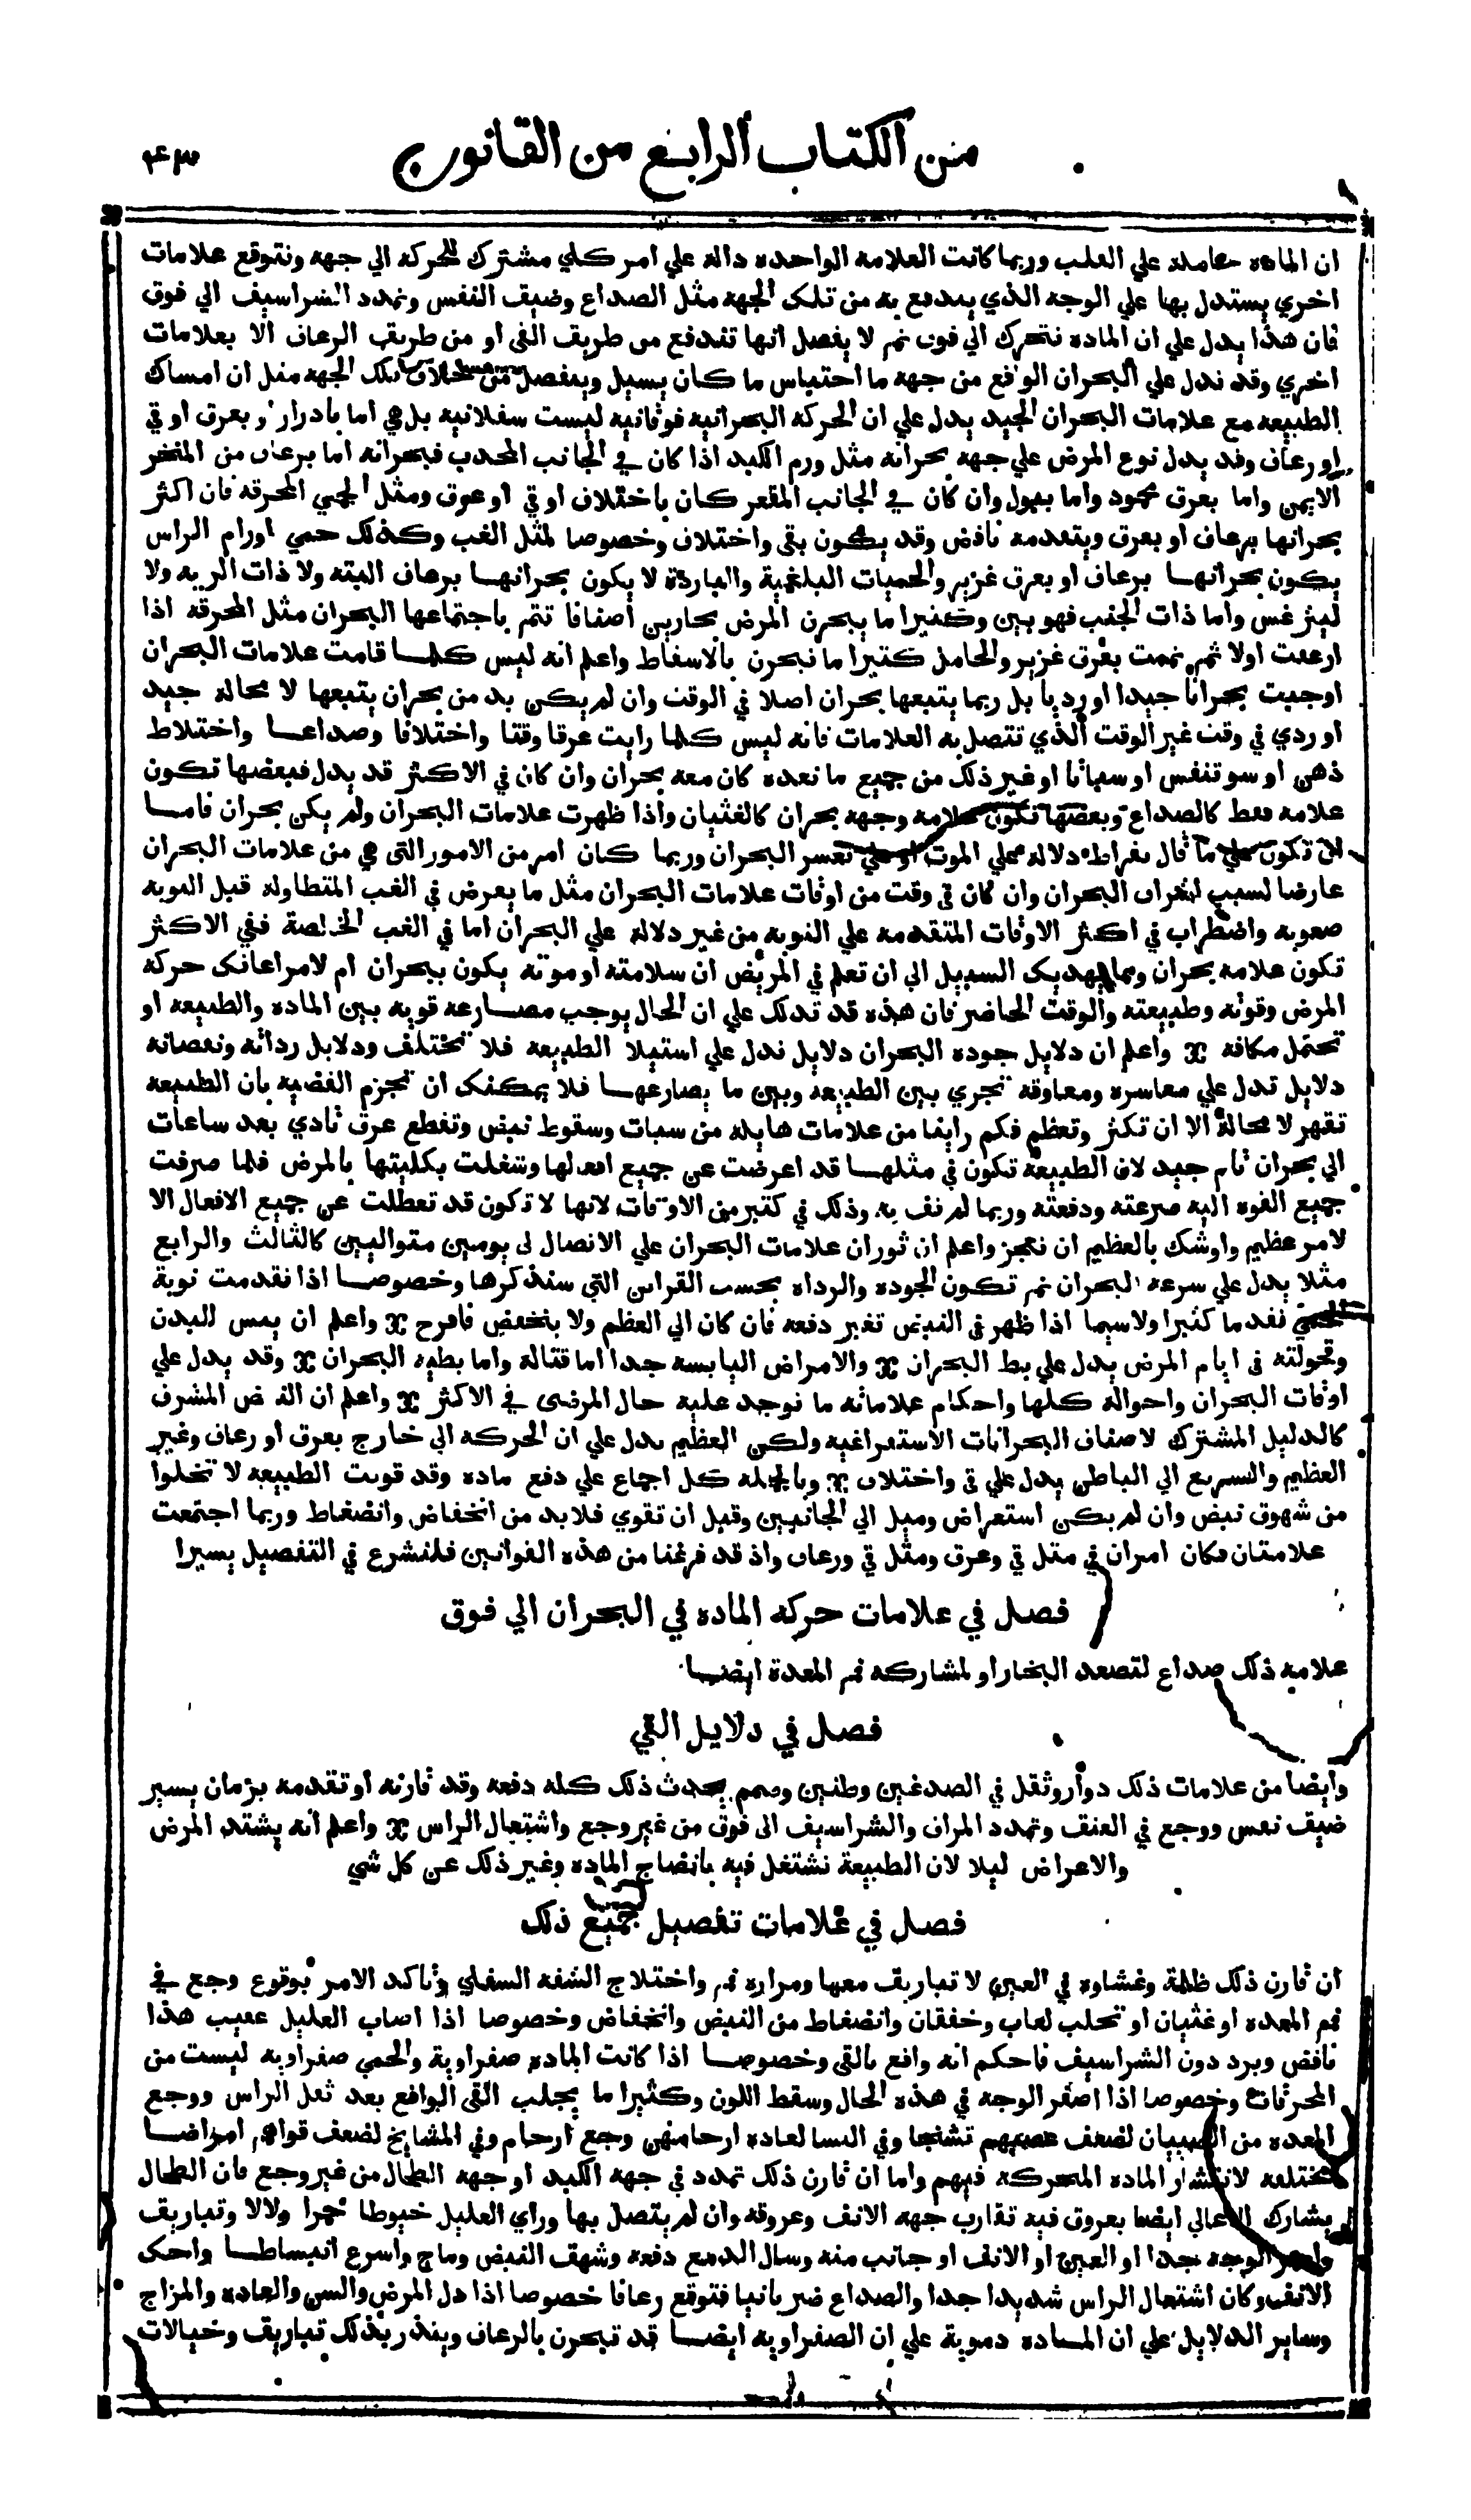 من الكتاب الرابع من القانون
٤٣
ان الماده حامله علي القلب وربما كانت العلامه الواحده داله علي امر كلي مشترك للحركه الي جهه ونتوقع علامات
اخري يستدل بها علي الوجه الذي يندفع به من تلك الجهه مثل الصداع وضيق النفس وتمدد الشراسيف الي فوق
فان هذا يدل علي ان الماده تتحرك الي فوق ثم لا يفصل انها تندفع من طريق القى او من طريق الرعاف الا بعلامات
اخري وقد تدل علي البحران الواقع من جهه ما احتباس ما كان يسيل وينفصل من خلاف تلك الجهه مثل ان امساك
الطبيعه مع علامات البحران الجيد يدل علي ان الحركه البحرانيه فوقانيه ليست سفلانيه بل هي اما بادرار او بعرق او قي
او رعاف وقد يدل نوع المرض علي جهه بحرانه مثل ورم الكبد اذا كان في الجانب المحدب فبحرانه اما برعاف من المنخر
الايمن واما بعرق محمود واما ببول وان كان في الجانب المقعر كان باختلاف او قي او عرق ومثل الحمي المحرقه فان اكثر
بحرانها برعاف او بعرق ويتقدمه نافض وقد يكون بقى واختلاف وخصوصا لمثل الغب وكذلك حمي اورام الراس
يكون بحرانهــا برعاف او بعرق غزير والحميات البلغمية والباردة لا يكون بحرانهــا برعاف البته ولا ذات الريه ولا
ليثرغس واما ذات الجنب فهو بين وكثيرا ما يبحرن المرض بحارين اصنافا تتم باجتماعها البحران مثل المحرقه اذا
ارعفت اولا ثم تممت بعرق غزير والحامل كثيرا ما تبحرن بالاسقاط واعلم انه ليس كلمــا قامت علامات البحران
اوجبت بحرانا جيدا او رديا بل ربما يتبعها بحران اصلا في الوقت وان لم يكن بد من بحران يتبعها لا محاله جيد
او ردي في وقت غير الوقت الذي تتصل به العلامات فانه ليس كلما رايت عرقا وقتا واختلافا وصداعــا واختلاط
ذهن او سو تنفس او سباتا او غير ذلك من جميع ما نعده كان معه بحران وان كان في الاكثر قد يدل فبعضها تكون
علامه فقط كالصداع وبعضها تكون علامه وجهه بحران كالغثيان واذا ظهرت علامات البحران ولم يكن بحران فامــا
لان تكون علي ما قال بقراط دلاله علي الموت او علي تعسر البحران وربما كان امر من الامور التي هي من علامات البحران
عارضا لسبب البحران وان كان في وقت من اوقات علامات البحران مثل ما يعرض في الغب المتطاوله قبل النوبه
صعوبه واضطراب في اكثر الاوقات المتقدمه علي النوبه من غير دلاله علي البحران اما في الغب الخالصة ففي الاكثر
تكون علامه بحران ومما يهديك السبيل الي ان تعلم في المريض ان سلامته او موته يكون ببحران ام لا مراعاتك حركه
المرض وقوته وطبيعته والوقت الحاضر فان هذه قد تدلك علي ان الحال يوجب مصــارعه قويه بين الماده والطبيعه او
تحتمل مكافه ※ واعلم ان دلايل جوده البحران دلايل تدل علي استيلا الطبيعه فلا تختلف ودلايل رداته ونقصانه
دلايل تدل علي معاسره ومعاوقه تجري بين الطبيعه وبين ما يصارعهــا فلا يمكنك ان تجزم القضيه بان الطبيعه
تقهر لا محالة الا ان تكثر وتعظم فكم راينا من علامات هايله من سبات وسقوط نبض وتقطع عرق تادي بعد ساعات
الي بحران تام جيد لان الطبيعه تكون في مثلهــا قد اعرضت عن جميع افعالها وشغلت بكليتها بالمرض فلما صرفت
جميع القوه اليه صرعته ودفعته وربما لم تف به وذلك في كثير من الاوقات لانها لا تكون قد تعطلت عن جميع الافعال الا
لامر عظيم واوشك بالعظيم ان نعجز واعلم ان ثوران علامات البحران علي الاتصال في يومين متواليين كالثالث والرابع
مثلا يدل علي سرعه البحران ثم تكون الجوده والرداه بحسب القراين التي سنذكرها وخصوصــا اذا تقدمت نوبة
الحمي تقدما كثيرا ولاسيما اذا ظهر في النبض تغير دفعه فان كان الي العظم ولا ينخفض فافرح ※ واعلم ان يبس البدن
وقحولته في ايام المرض يدل علي بط البحران ※ والامراض اليابسه جدا اما قتاله واما بطيه البحران ※ وقد يدل علي
اوقات البحران واحواله كلها واحكام علاماته ما توجد عليه حال المرضى في الاكثر ※ واعلم ان النبض المشرف
كالدليل المشترك لاصناف البحرانات الاستفراغيه ولكن العظيم يدل علي ان الحركه الي خارج بعرق او رعاف وغير
العظيم والسريع الي الباطن يدل علي قى واختلاف ※ وبالجمله كل اجماع علي دفع ماده وقد قويت الطبيعه لا تخلوا
من شهوق نبض وان لم يكن استعراض وميل الي الجانبين وقبل ان تقوي فلابد من انخفاض وانضغاط وربما اجتمعت
علامتان فكان امران في مثل قي وعرق ومثل قي ورعاف واذ قد فرغنا من هذه القوانين فلنشرع في التفصيل يسيرا
فصل في علامات حركه الماده في البحران الي فوق
علامه ذلك صداع لتصعد البخار او لمشاركه فم المعدة ايضــا
فصل في دلايل القي
وايضا من علامات ذلك دوار وثقل في الصدغين وطنين وصمم يحدث ذلك كله دفعه وقد قارنه او تقدمه بزمان يسير
ضيق نفس ووجع في العنق وتمدد المراق والشراسيف الى فوق من غير وجع واشتعال الراس ※ واعلم انه يشتد المرض
والاعراض ليلا لان الطبيعة تشتغل فيه بانضاج الماده وغير ذلك عن كل شي
فصل في علامات تفصيل جميع ذلك
ان قارن ذلك ظلمة وغشاوه في العين لا تباريق معها ومراره فم واختلاج الشفه السفلي وتاكد الامر بوقوع وجع في
فم المعده او غثيان او تحلب لعاب وخفقان وانضغاط من النبض وانخفاض وخصوصا اذا اصاب العليل عقيب هذا
نافض وبرد دون الشراسيف فاحكم انه واقع بالقى وخصوصــا اذا كانت الماده صفراوية والحمي صفراويه ليست من
المحرقات وخصوصا اذا اصفر الوجه في هذه الحال وسقط اللون وكثيرا ما يجلب القى الواقع بعد ثقل الراس ووجع
المعده من الصبيان لضعف عصبهم تشنجا وفي النسا لعاده ارحامهن وجع ارحام وفي المشايخ لضعف قواهم امراضــا
مختلفه لانتشار الماده المتحركه فيهم واما ان قارن ذلك تمدد في جهه الكبد او جهه الطحال من غير وجع فان الطحال
يشارك الاعالي ايضا بعروق فيه تقارب جهه الانف وعروقه وان لم يتصل بها وراي العليل خيوطا حمرا ولالا وتباريق
واحمر الوجه جدا او العين او الانف او جانب منه وسال الدمع دفعه وشهق النبض وماج واسرع انبساطــا واحك
الانف وكان اشتعال الراس شديدا جدا والصداع ضربانيا فتوقع رعافا خصوصا اذا دل المرض والسن والعاده والمزاج
وساير الدلايل علي ان المــاده دموية علي ان الصفراويه ايضــا قد تبحرن بالرعاف وينذر بذلك تباريق وخيالات